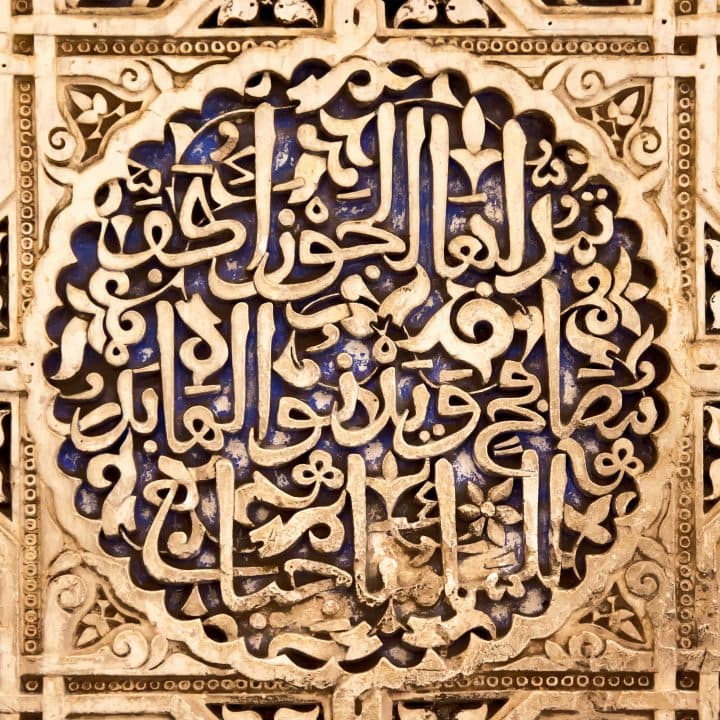 تمد لها الجوزا كف
مصافح ويدنوا لها بدر
السما مناجيا